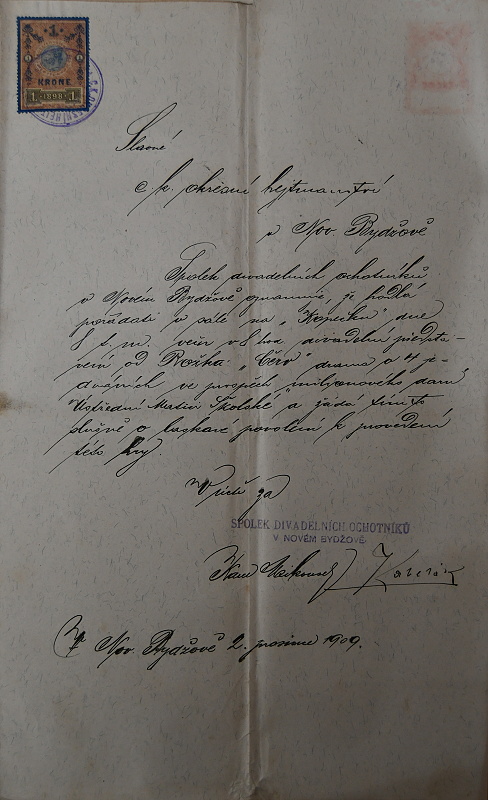 1
KRONE
1 · 1898 · 1
Slavné
c. k. okresní hejtmanství
v Nov. Bydžově
Spolek divadelních ochotníků
v Novém Bydžově oznamuje, že hodlá
pořádati v sále na „Kopečku" dne
8 t. m. večer v 8 hod. divadelní předsta-
vení od Rožka: „Červ" drama o 4 jed-
náních ve prospěch „milionového daru
Ústřední Matici Školské" a žádá tímto
slušně o laskavé povolení k provedení
této hry.
V úctě za
SPOLEK DIVADELNÍCH OCHOTNÍKŮ
V NOVÉM BYDŽOVĚ
V Nov. Bydžově 2. prosince 1909.